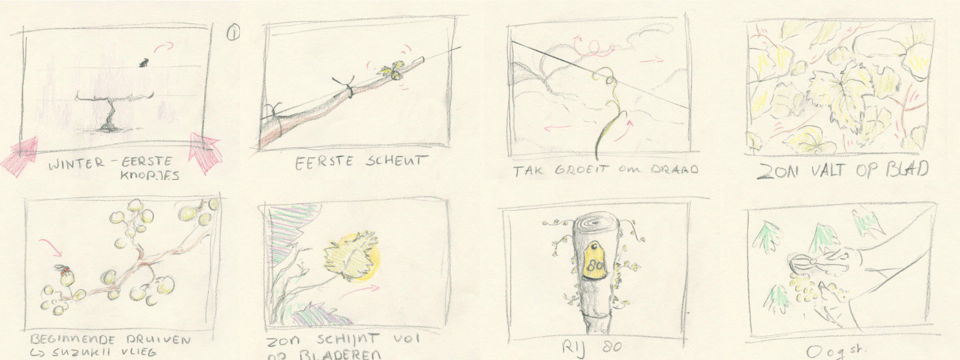 1
WINTER - EERSTE
KNOPJES
EERSTE SCHEUT
TAK GROEIT om DRAAD
ZON VALT OP BLAD
BEGINNENDE DRUIVEN
↳ SUZUKII VLIEG
ZON SCHIJNT VOL
OP BLADEREN
80
RIJ 80
Oogst.